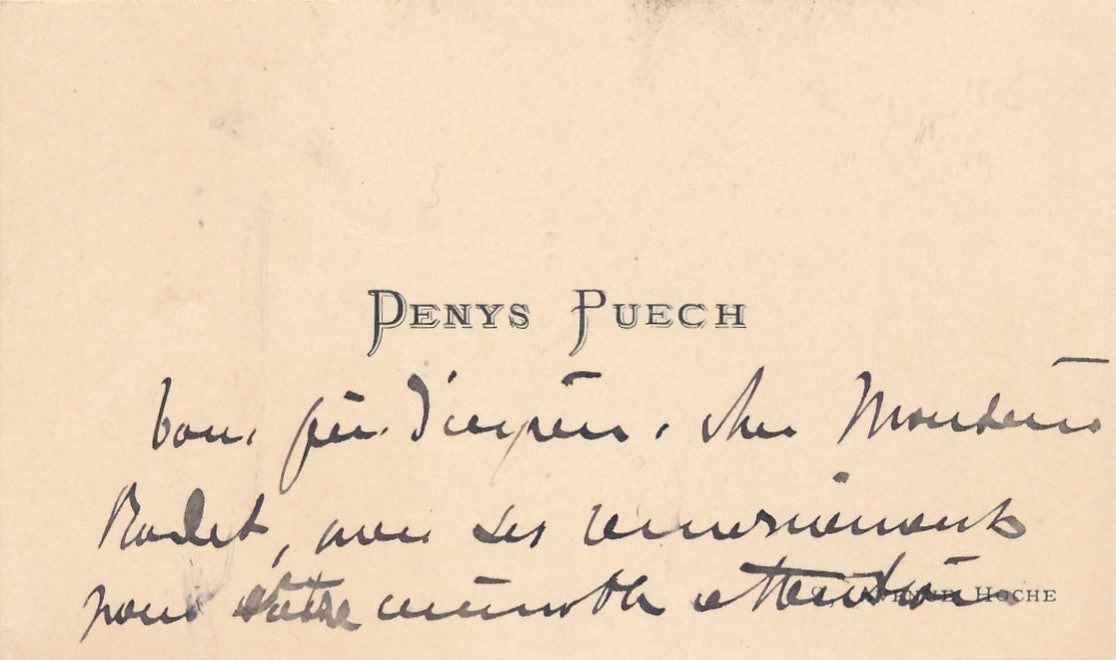 DENYS PUECH
vous prie cher Monsieur
avec ses remerciements
pour votre aimable attention
AVENUE HOCHE